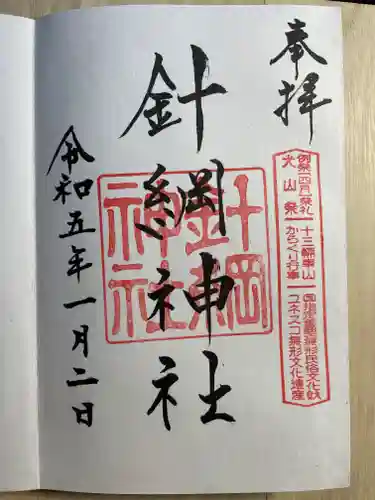 奉拝
例祭 四月祭礼
犬山祭
十三輛車山
からくり行事
国指定重要無形民俗文化財
ユネスコ無形文化遺産
針綱神社
針綱神社
令和五年一月二日